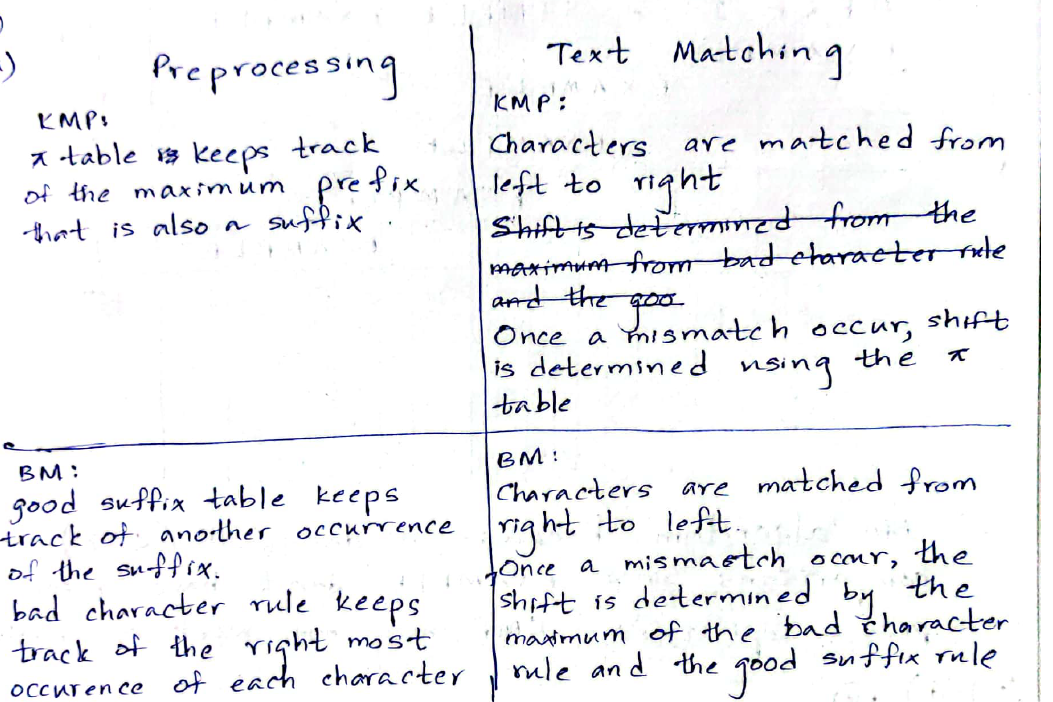 )
Preprocessing
KMP:
π table is keeps track
of the maximum prefix
that is also a suffix.
Text Matching
KMP:
Characters are matched from
left to right
Shift is determined from the
maximum from bad character rule
and the goo
Once a mismatch occur, shift
is determined using the π
table
BM:
good suffix table keeps
track of another occurrence
of the suffix.
bad character rule keeps
track of the right most
occurence of each character
BM:
Characters are matched from
right to left.
Once a mismaetch occur, the
shift is determined by the
maximum of the bad character
rule and the good suffix rule